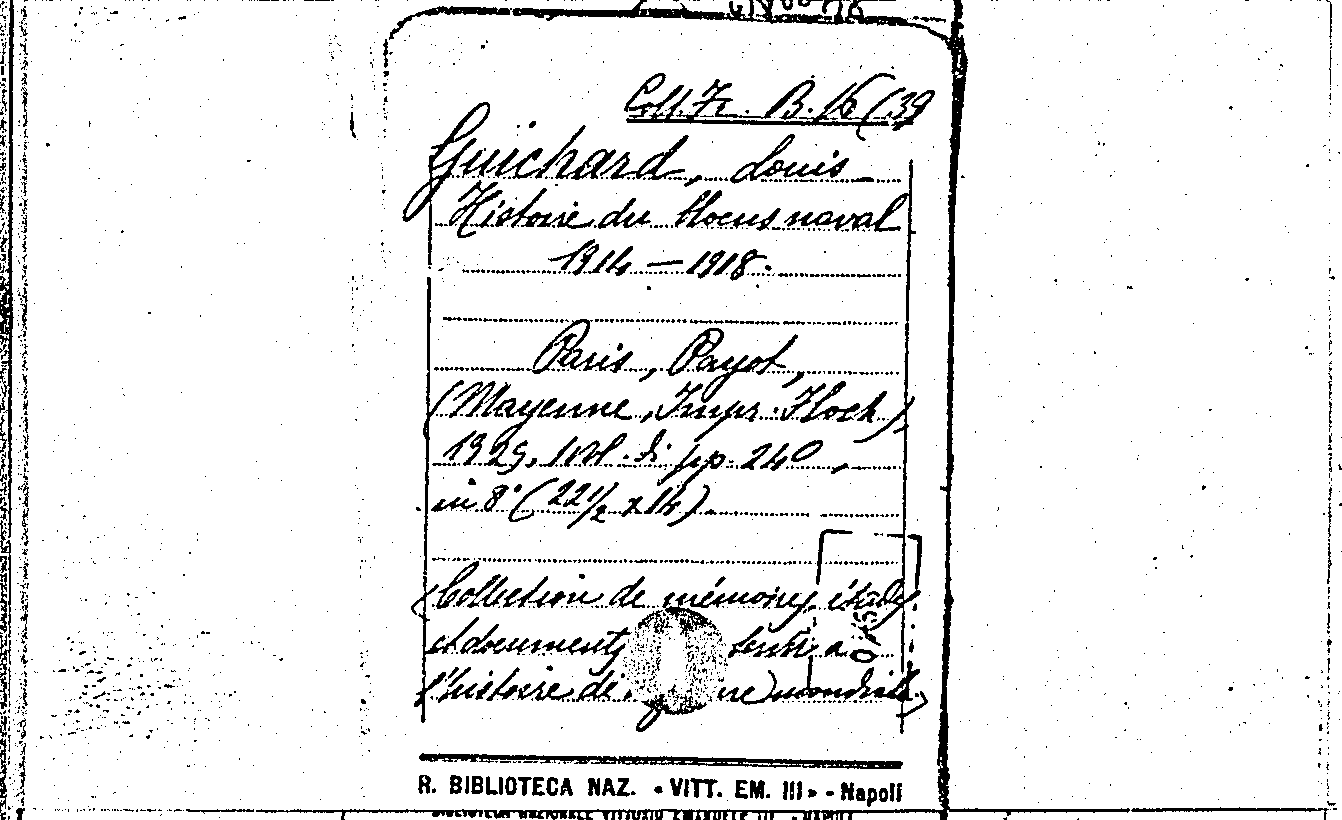 Coll. Fr. B. 16 (39
Guichard, Louis
Histoire du blocus naval
1914 — 1918.
Paris, Payot,
(Mayenne, Impr. Floch)
1929, 1 vol. di pp. 240,
in 8° (22 1/2 x 14).
(Collection de mémoires, études
et documents a
l'histoire de mondiale
R. BIBLIOTECA NAZ. « VITT. EM. III » - Napoli
BIBLIOTECA NAZIONALE VITTORIO EMANUELE III - NAPOLI